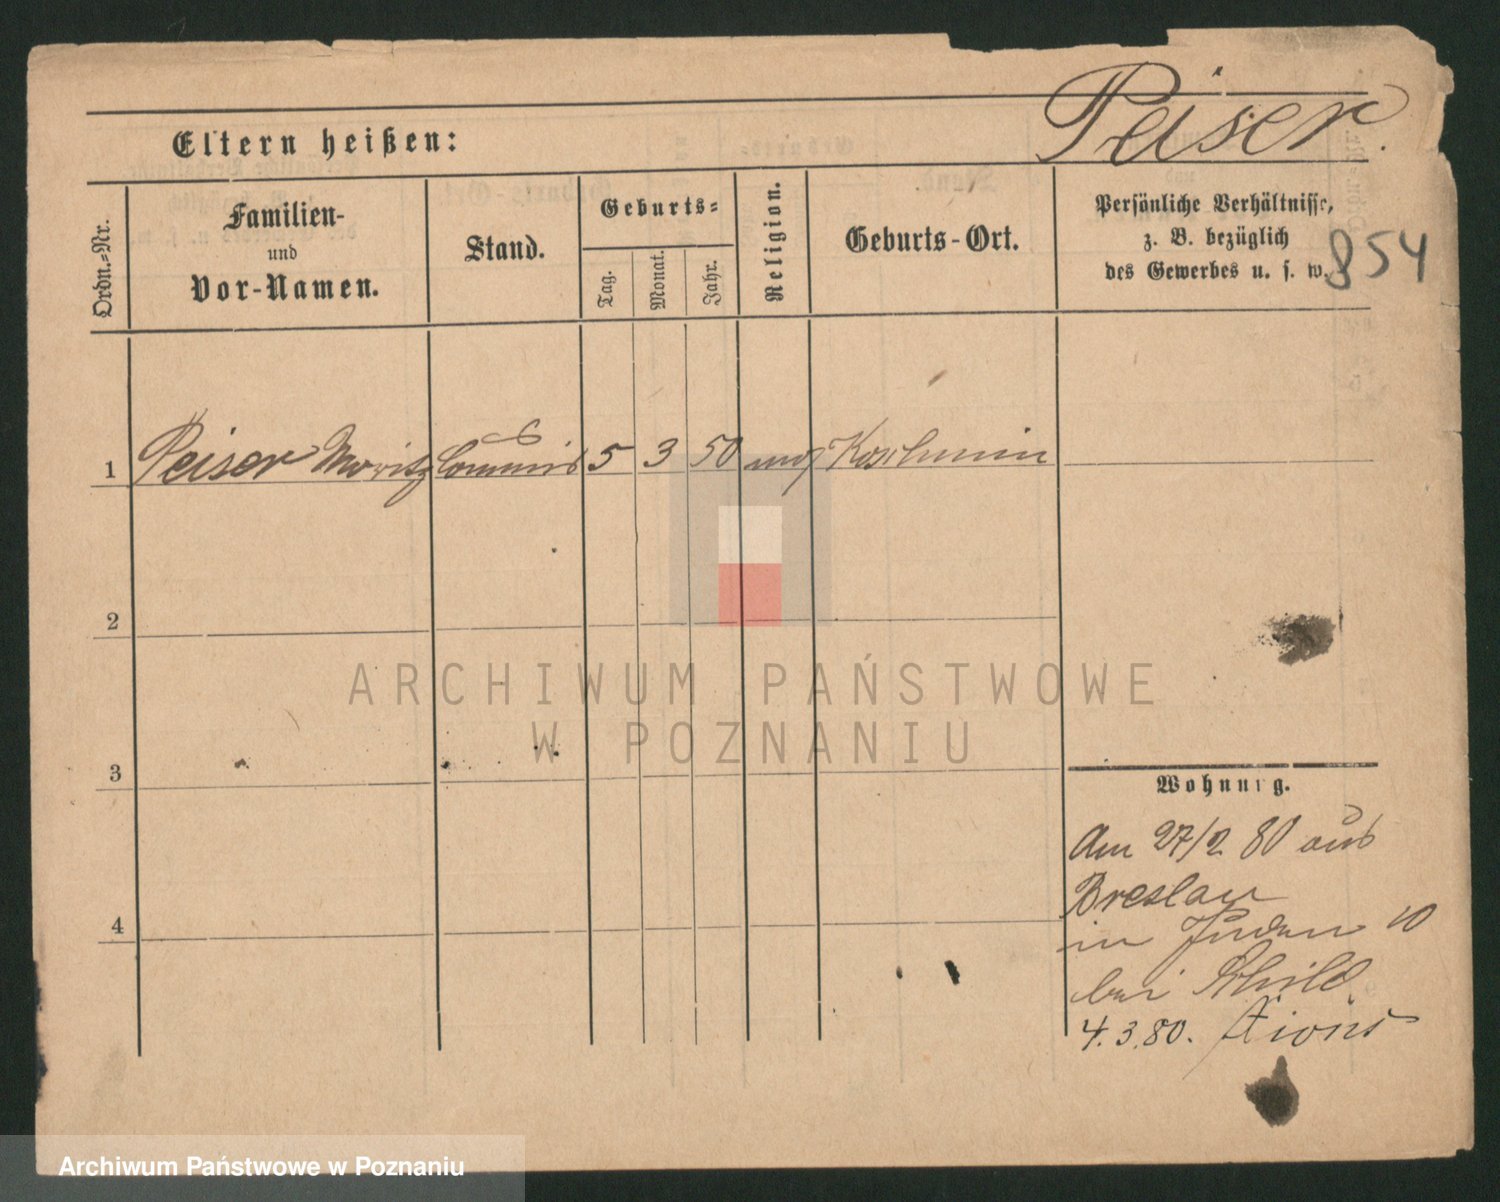 Peiser.
Eltern heißen:
Ordn.=Nr.
Familien-
und
Vor-Namen.
Stand.
Geburts=
Tag.
Monat.
Jahr.
Religion.
Geburts-Ort.
Persönliche Verhältnisse,
z. B. bezüglich
des Gewerbes u. s. w.
854
1 Peiser Moritz Commis 5 3 50 mos Koschmin
2
3
4
Wohnung.
Am 27/2 80 aus
Breslau
in Juden 10
bei Schild
4.3.80.
ARCHIWUM PAŃSTWOWE
W POZNANIU
Archiwum Państwowe w Poznaniu